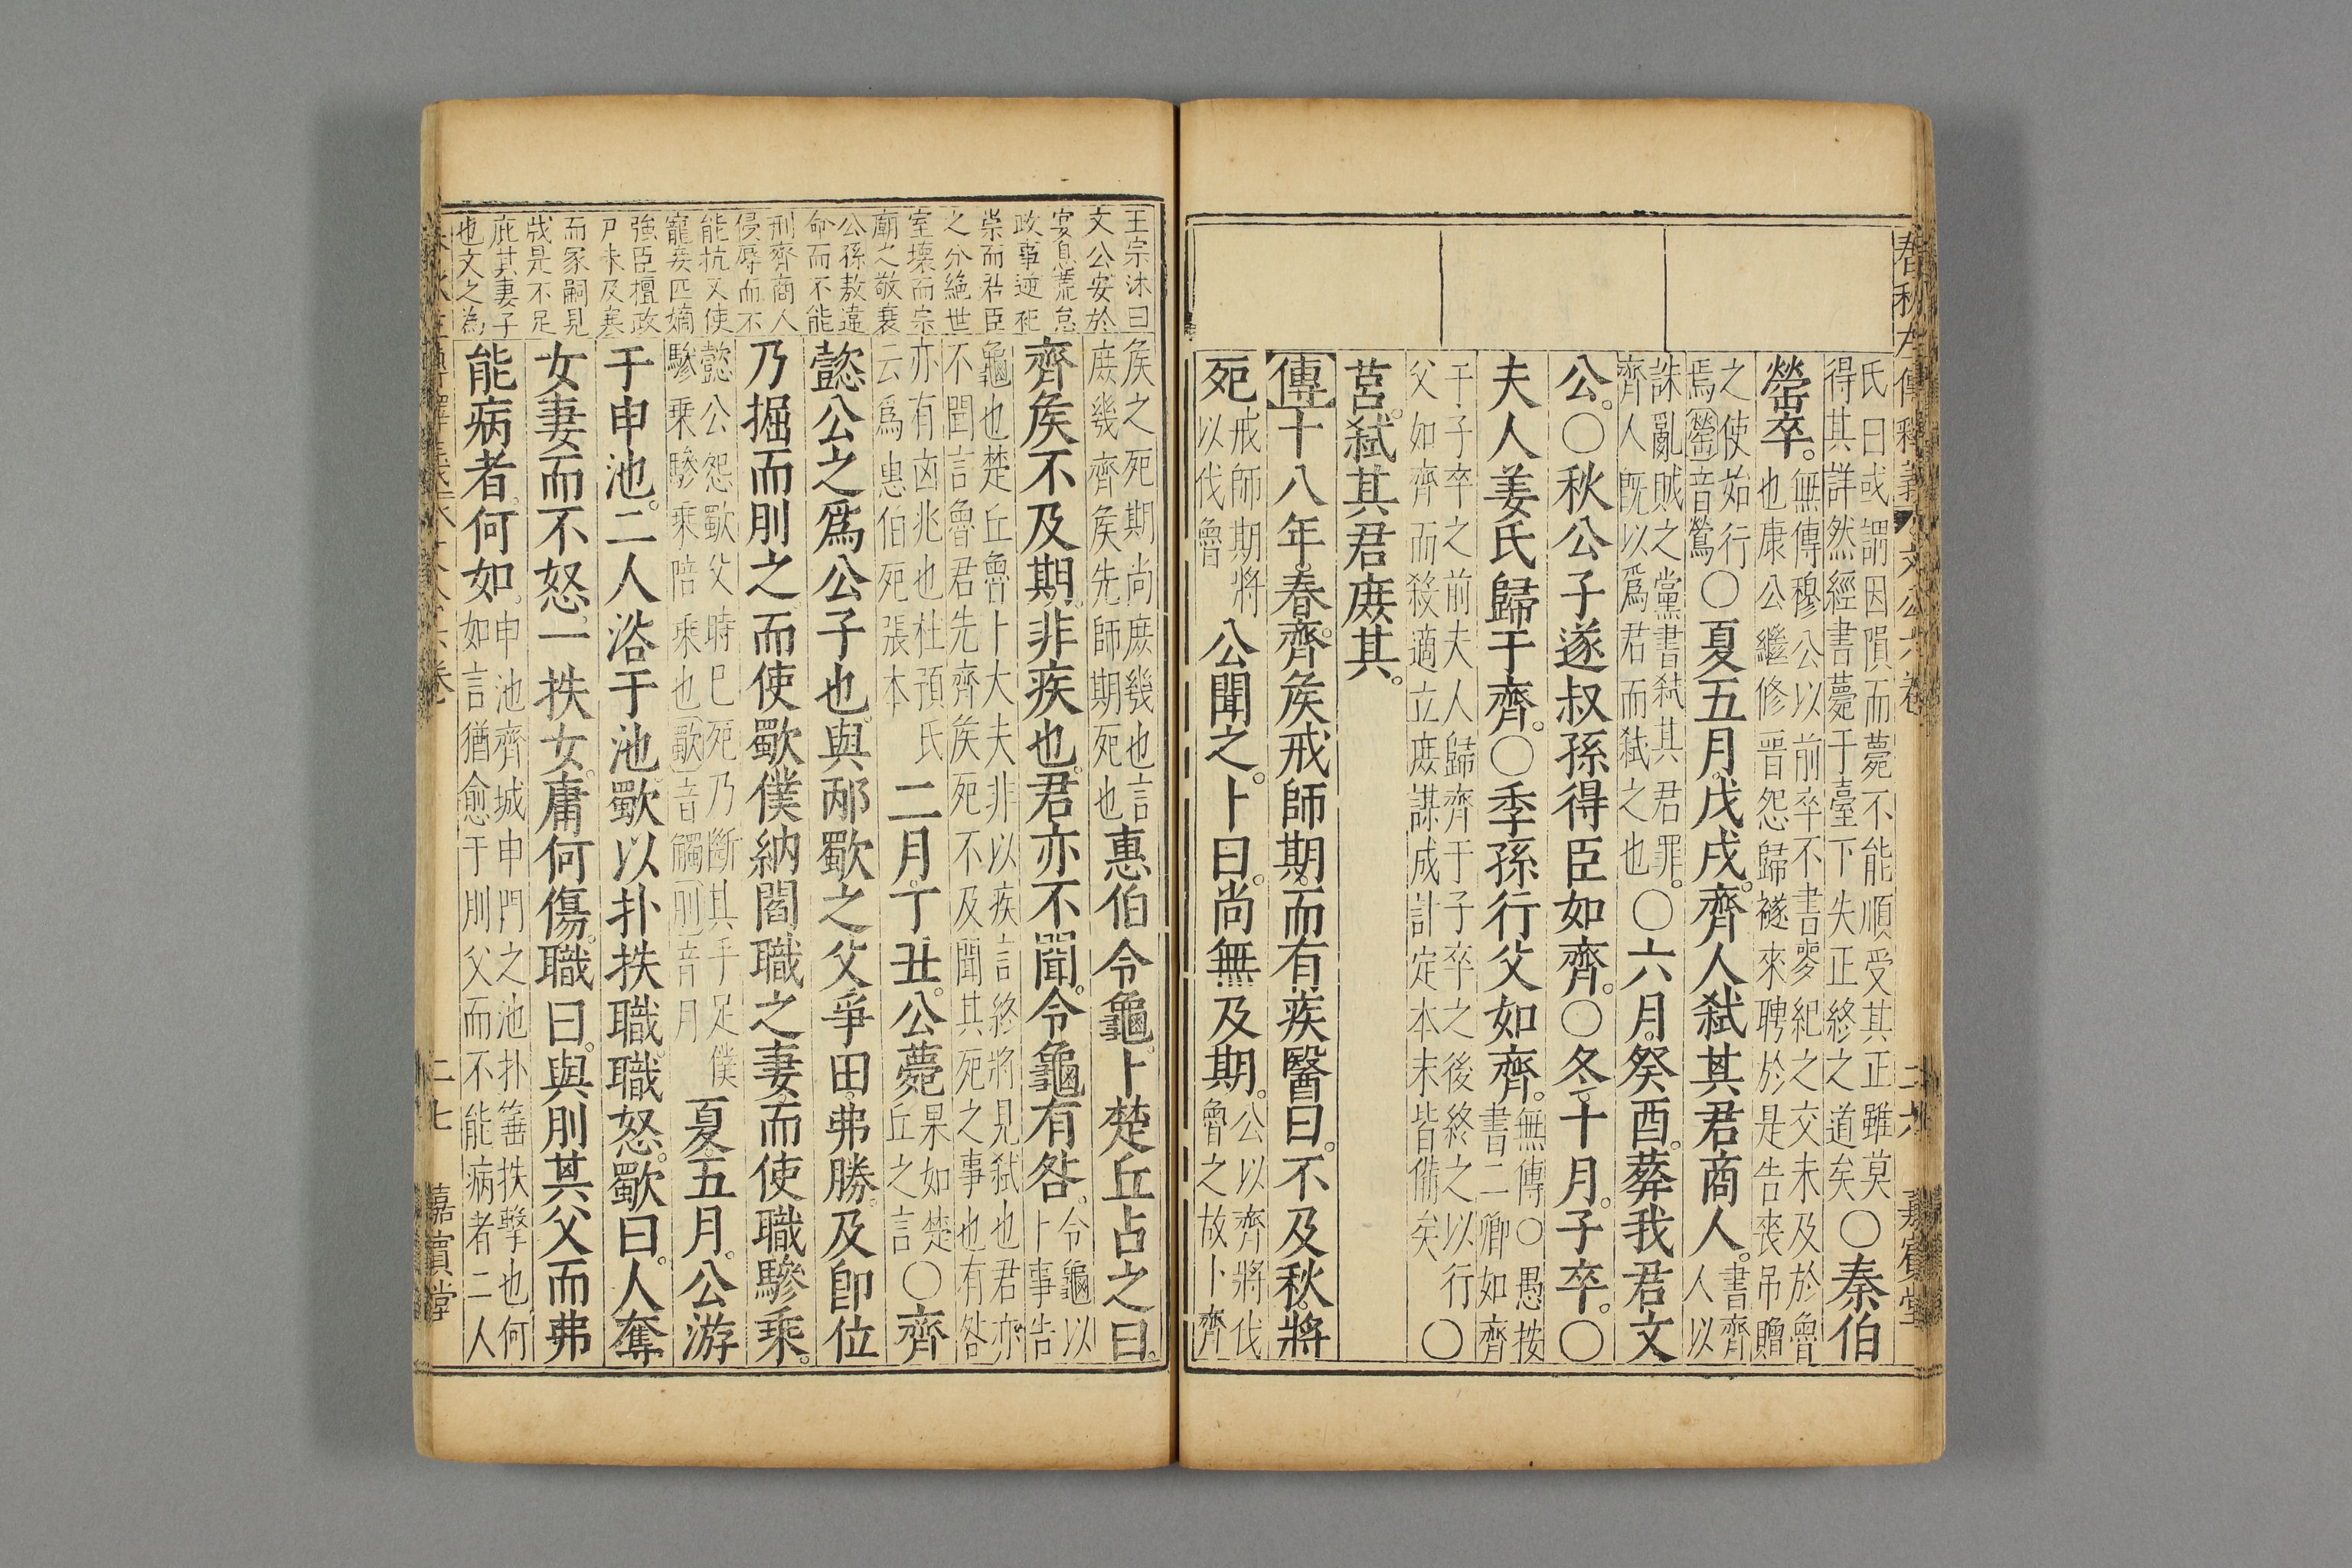 春秋左傳釋義 文公六卷 二六 嘉賓堂
氏曰或謂因隕而薨不能順受其正雖莫
得其詳然經書薨于臺下失正終之道矣〇秦伯
罃卒。無傳穆公以前卒不書麥紀之交未及於魯
也康公繼修晋怨歸襚來聘於是告喪吊贈
之使始行
焉罃音鶯〇夏五月戊戌齊人弑其君商人。書齊
人以
誅亂賊之黨書弑其君罪。
齊人既以爲君而弑之也〇六月癸酉。葬我君文
公。〇秋公子遂叔孫得臣如齊。〇冬十月。子卒。〇
夫人姜氏歸于齊。〇季孫行父如齊。無傳〇愚按
書二卿如齊
于子卒之前夫人歸齊于子卒之後終之以行
父如齊而殺適立庶謀成計定本末皆備矣〇
莒弑其君庶其。
傳十八年。春。齊矦戒師期。而有疾醫曰。不及秋。將
死戒師期將
以伐魯公聞之。卜曰。尚無及期。公以齊將伐
魯之故卜齊
王宗沐曰
文公安於
宴息荒怠
政事逆祀
祟而君臣
之分絶世
室壞而宗
廟之敬衰
公孫敖違
命而不能
刑齊商人
侵辱而不
能抗又使
寵妾匹嫡
強臣檀政
尸未及塞
而冢嗣見
戕是不足
庇其妻子
也文之為
矦之死期尚庶幾也言
庶幾齊矦先師期死也惠伯令龜。卜楚丘占之曰。
齊矦不及期。非疾也。君亦不聞。令龜有咎。令龜以
卜事告
龜也楚丘魯卜大夫非以疾言終將見弑也君亦
不聞言魯君先齊矦死不及聞其死之事也有咎
亦有凶兆也杜預氏
云爲惠伯死張本二月。丁丑。公薨果如楚
丘之言〇齊
懿公之爲公子也。與邴歜之父爭田。弗勝。及卽位
乃掘而刖之而使歜僕納閻職之妻。而使職驂乘。
懿公怨歜父時巳死乃斷其手足僕
驂乗驂乘陪乘也歜音觸刖音月夏。五月。公游
于申池。二人浴于池。歜以扑抶職。職怒。歜曰。人奪
女妻而不怒。一抶女。庸何傷。職曰。與刖其父而弗
能病者。何如。申池齊城申門之池扑箠抶擊也何
如言猶愈于刖父而不能病者二人
二七 嘉賓堂